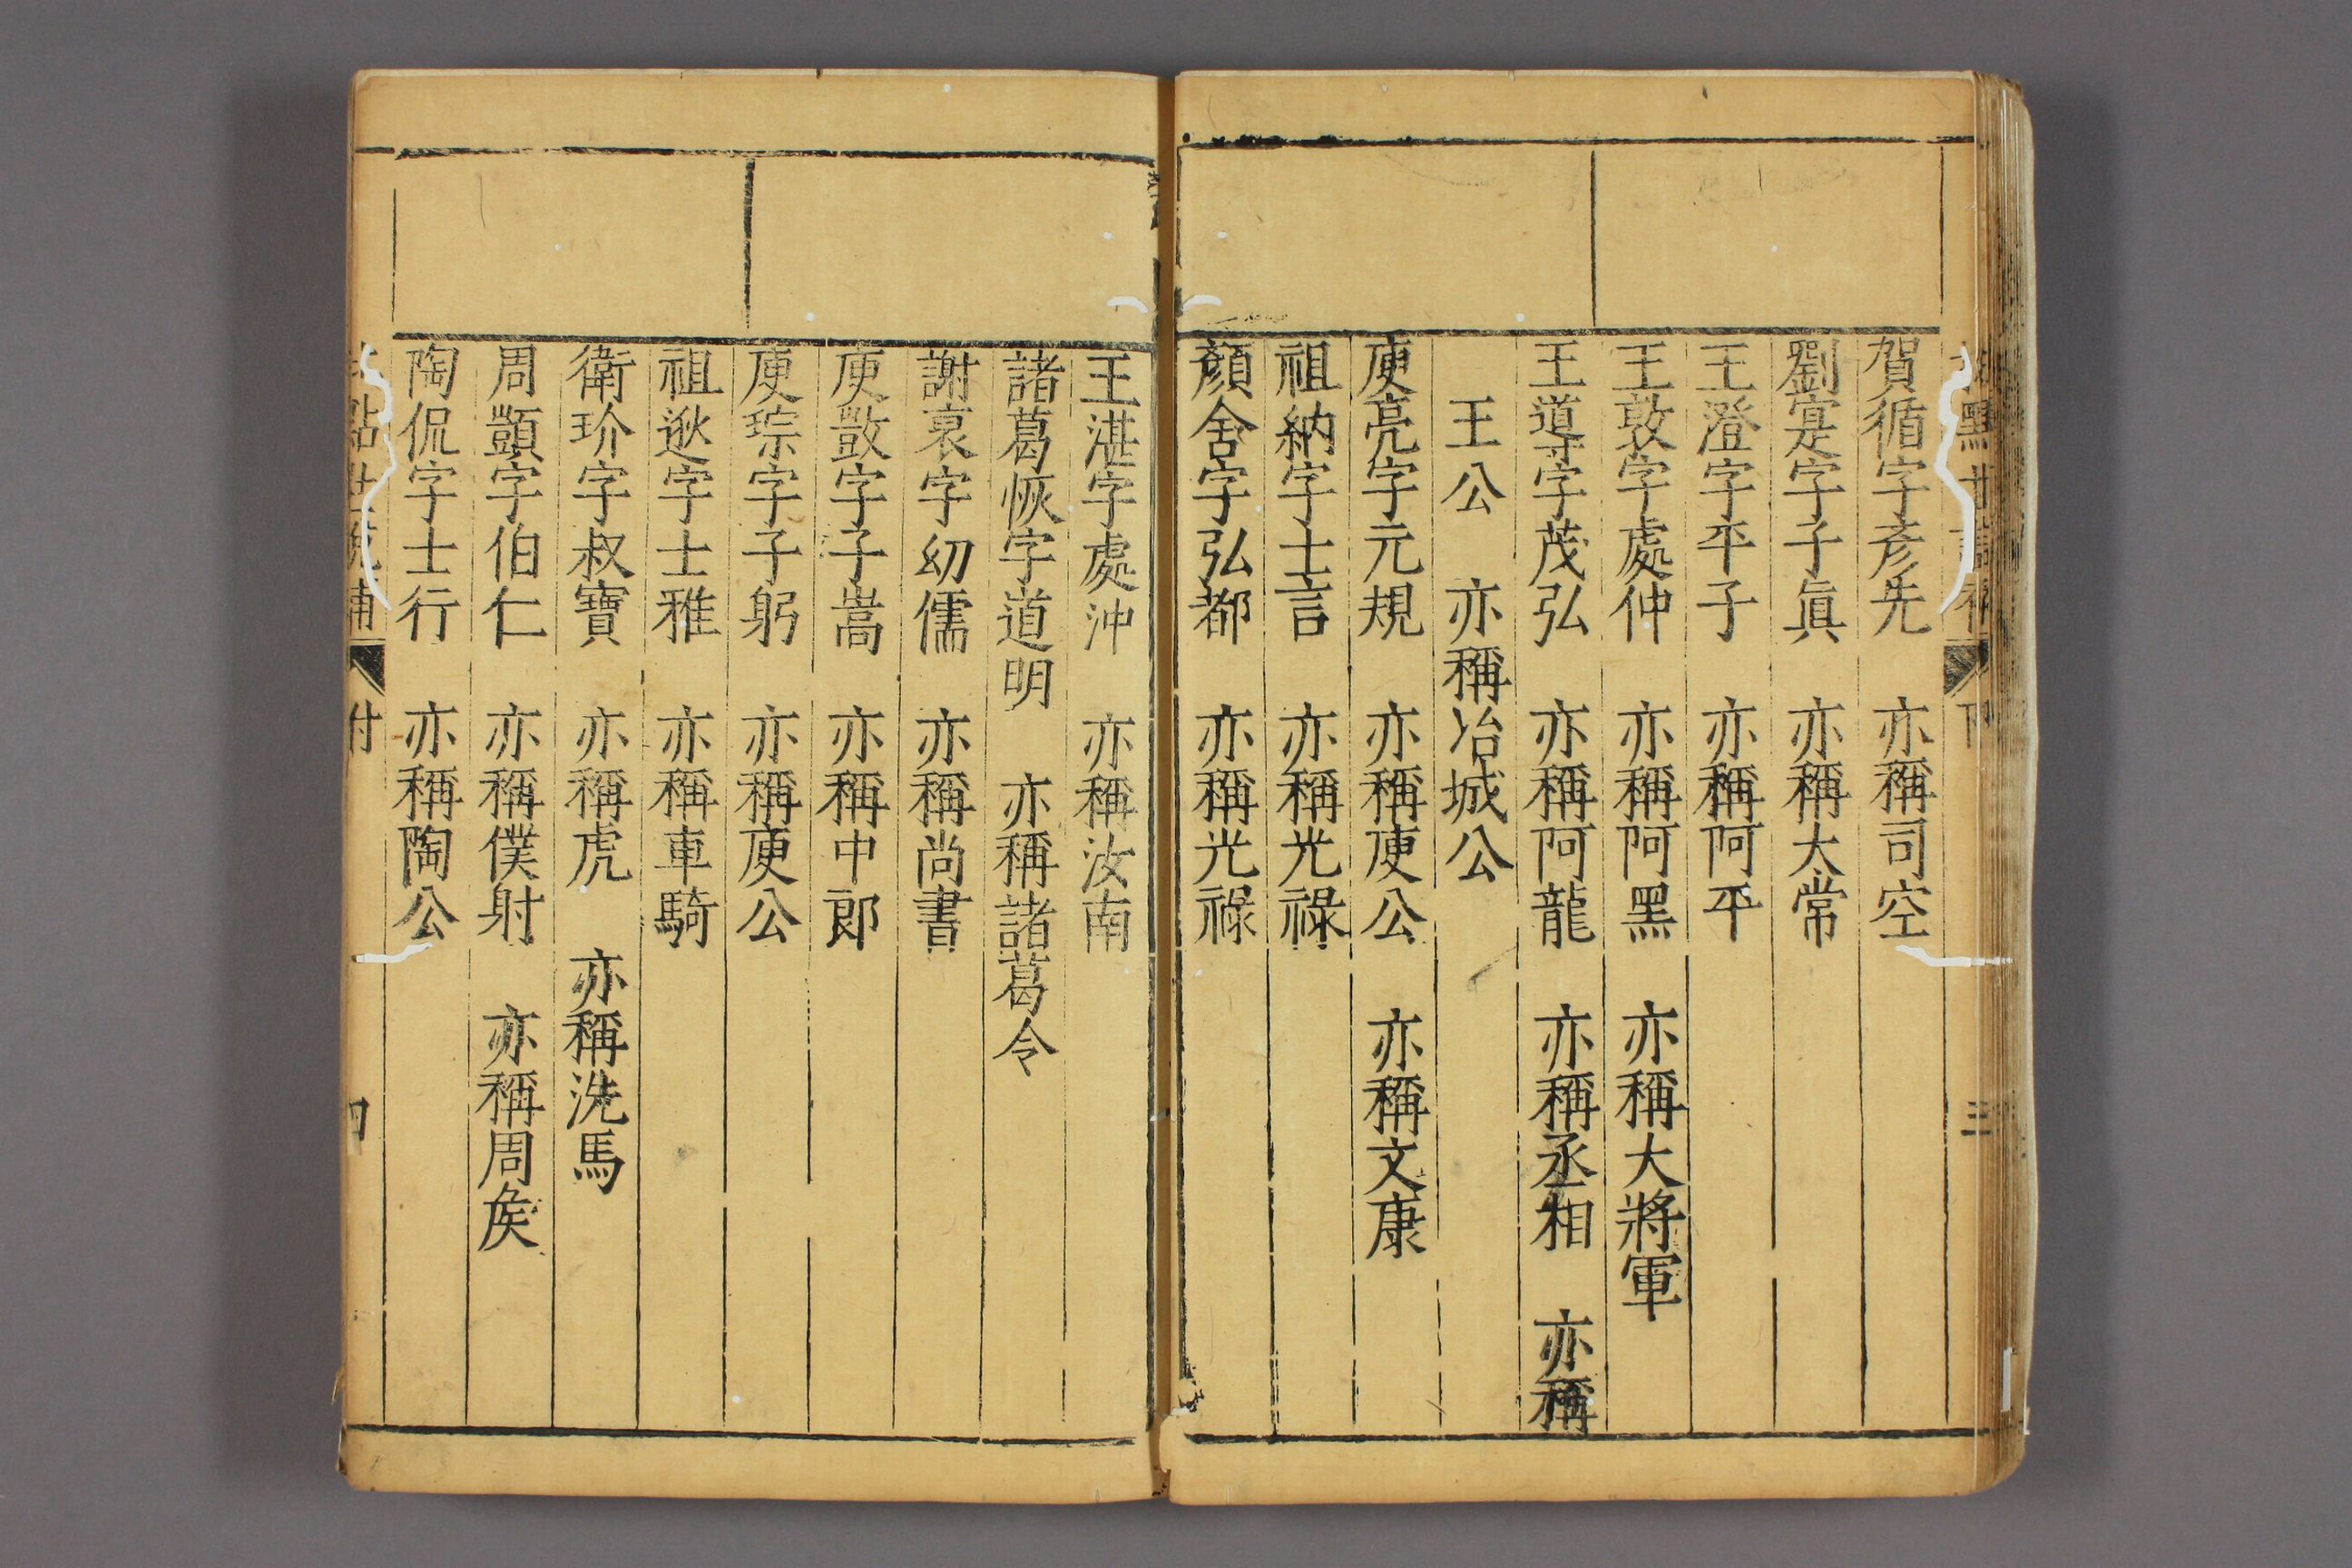 賀循字彥先　亦稱司空
劉寔字子眞　亦稱太常
王澄字平子　亦稱阿平
王敦字處仲　亦稱阿黑　亦稱大將軍
王導字茂弘　亦稱阿龍　亦稱丞相　亦稱
王公　亦稱冶城公
庾亮字元規　亦稱庾公　亦稱文康
祖納字士言　亦稱光祿
顏含字弘都　亦稱光祿
王湛字處沖　亦稱汝南
諸葛恢字道明　亦稱諸葛令
謝裒字幼儒　亦稱尚書
庾敳字子嵩　亦稱中郎
庾琮字子躬　亦稱庾公
祖逖字士雅　亦稱車騎
衛玠字叔寶　亦稱虎　亦稱洗馬
周顗字伯仁　亦稱僕射　亦稱周矦
陶侃字士行　亦稱陶公